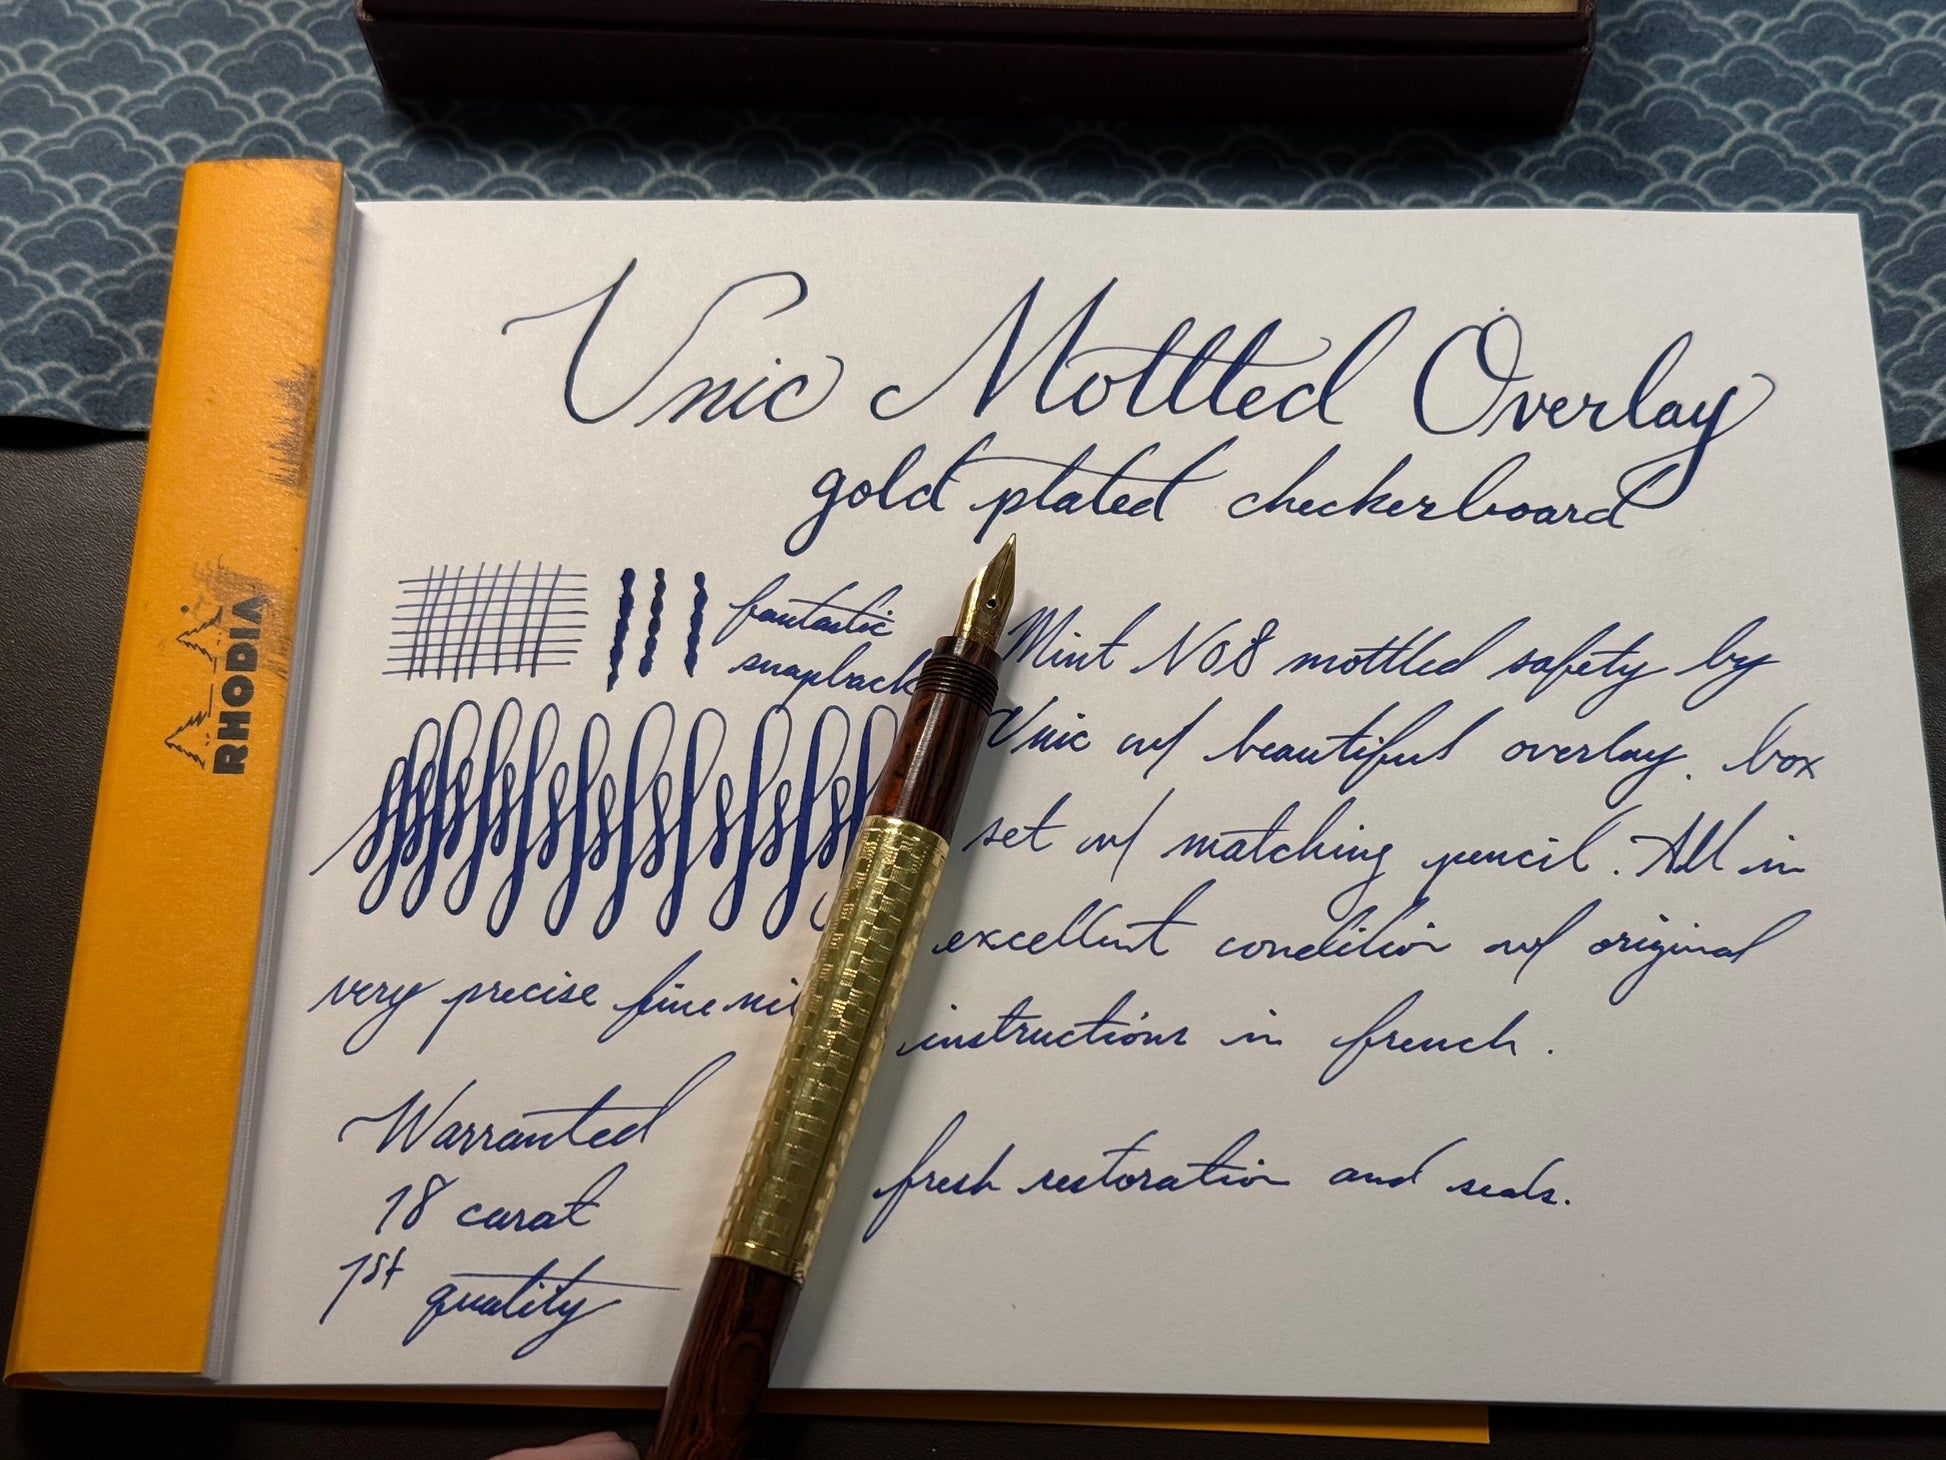 Unic Mottled Overlay
gold plated checkerboard
fantastic
snapback
very precise fine ni
Warranted
18 carat
1st quality
Mint No8 mottled safety by
Unic w/ beautiful overlay. box
set w/ matching pencil. All in
excellent condition w/ original
instructions in french.
fresh restoration and seals.
RHODIA